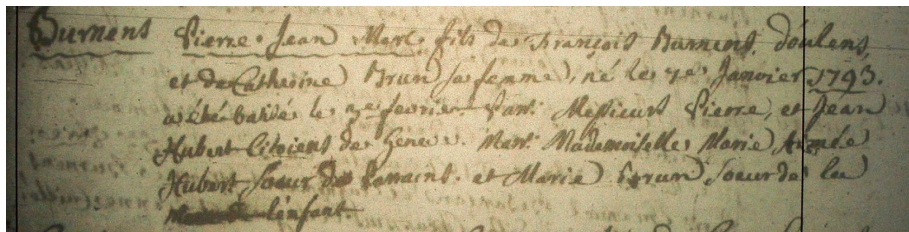 Burnens Pierre Jean Marc fils de François Burnens, d'oulens,
et de Catherine Brun sa femme, né le 7e Janvier 1793.
a été batisé le 3e fevrier. Parr: Messieurs Pierre, et Jean
Hubert Citoiens de Geneve. Marr: Mademoiselle Marie Aimée
Hubert soeur des Parraint. et Marie Brun soeur de la
l'enfant.